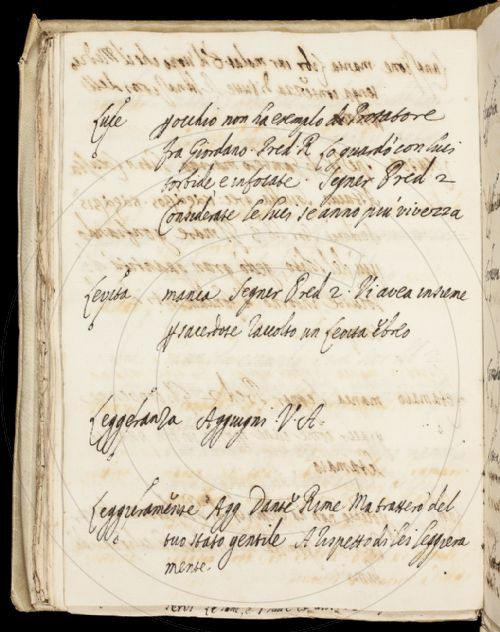 Luce p occhio non ha esempio di Prosatore
fra Giordano Pred R Lo guardò con luci
torbide e infocate. Segner Pred 2
Considerate le luci se anno più vivezza
Levita manca Segner Pred 2. Vi avea insieme
p sacerdote raccolto un Levita Ebreo
Leggeranza Aggiugni V. A.
Leggieramēnte Agg Dante Rime Ma tratterò del
tuo stato gentile A rispetto di lei leggiera
mente.